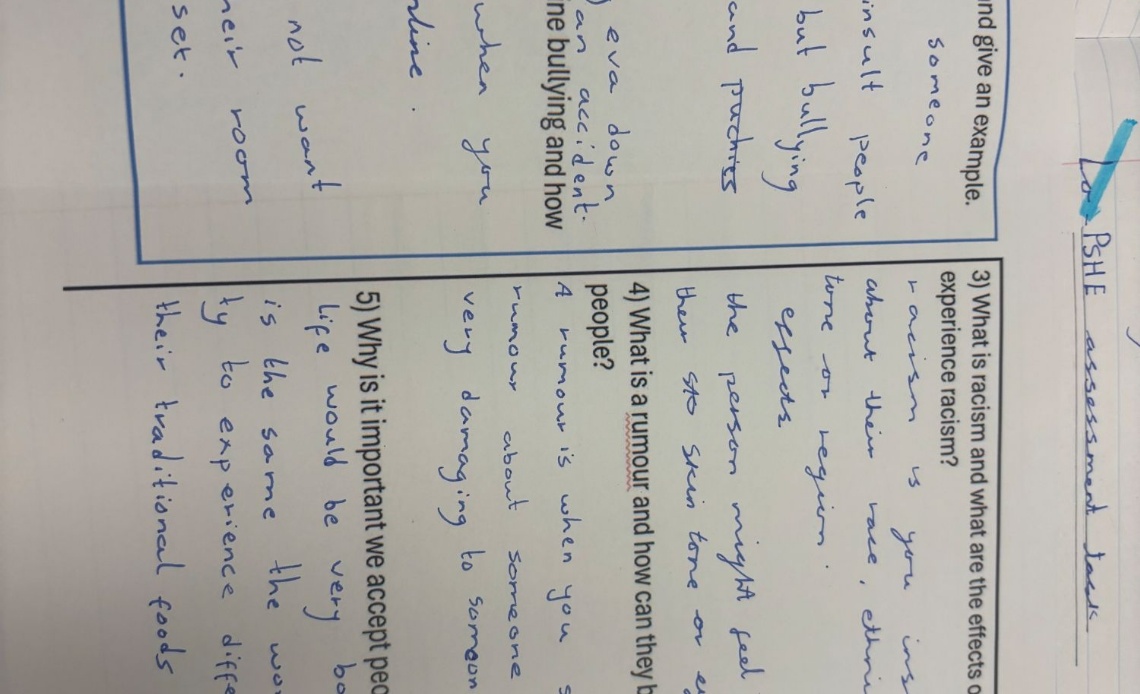 Lo- PSHE assessment task
and give an example.
someone
insult people
but bullying
and puchies
eva down
an accident.
ine bullying and how
when you
nline.
not want
heir room
set.
3) What is racism and what are the effects o
experience racism?
racism is you ins
about their race, ethni
tone or region.
effects
the person might feel
their sto skin tone or e
4) What is a rumour and how can they b
people?
A rumour is when you s
rumour about someone
very damaging to someon
5) Why is it important we accept peo
Life would be very bo
is the same the wor
ty to experience diffe
their traditional foods